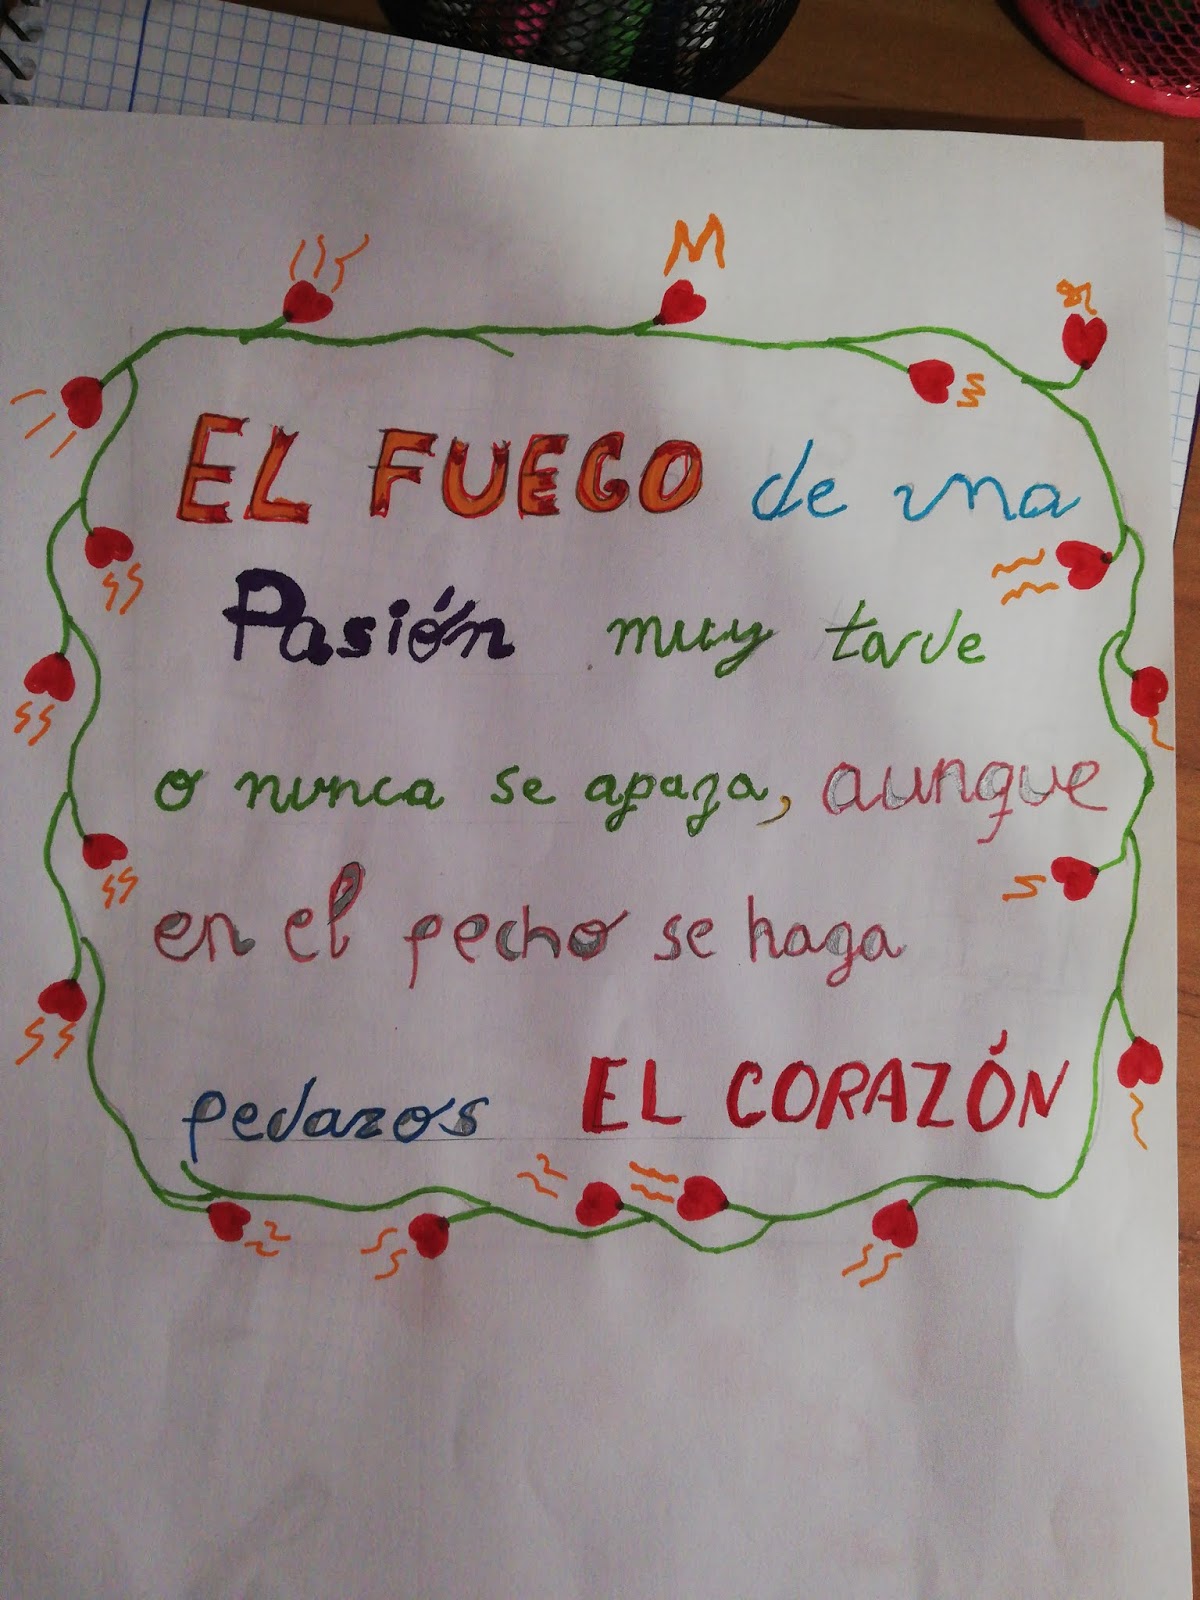 EL FUEGO de una
Pasión muy tarde
o nunca se apaga, aunque
en el pecho se haga
pedazos EL CORAZÓN